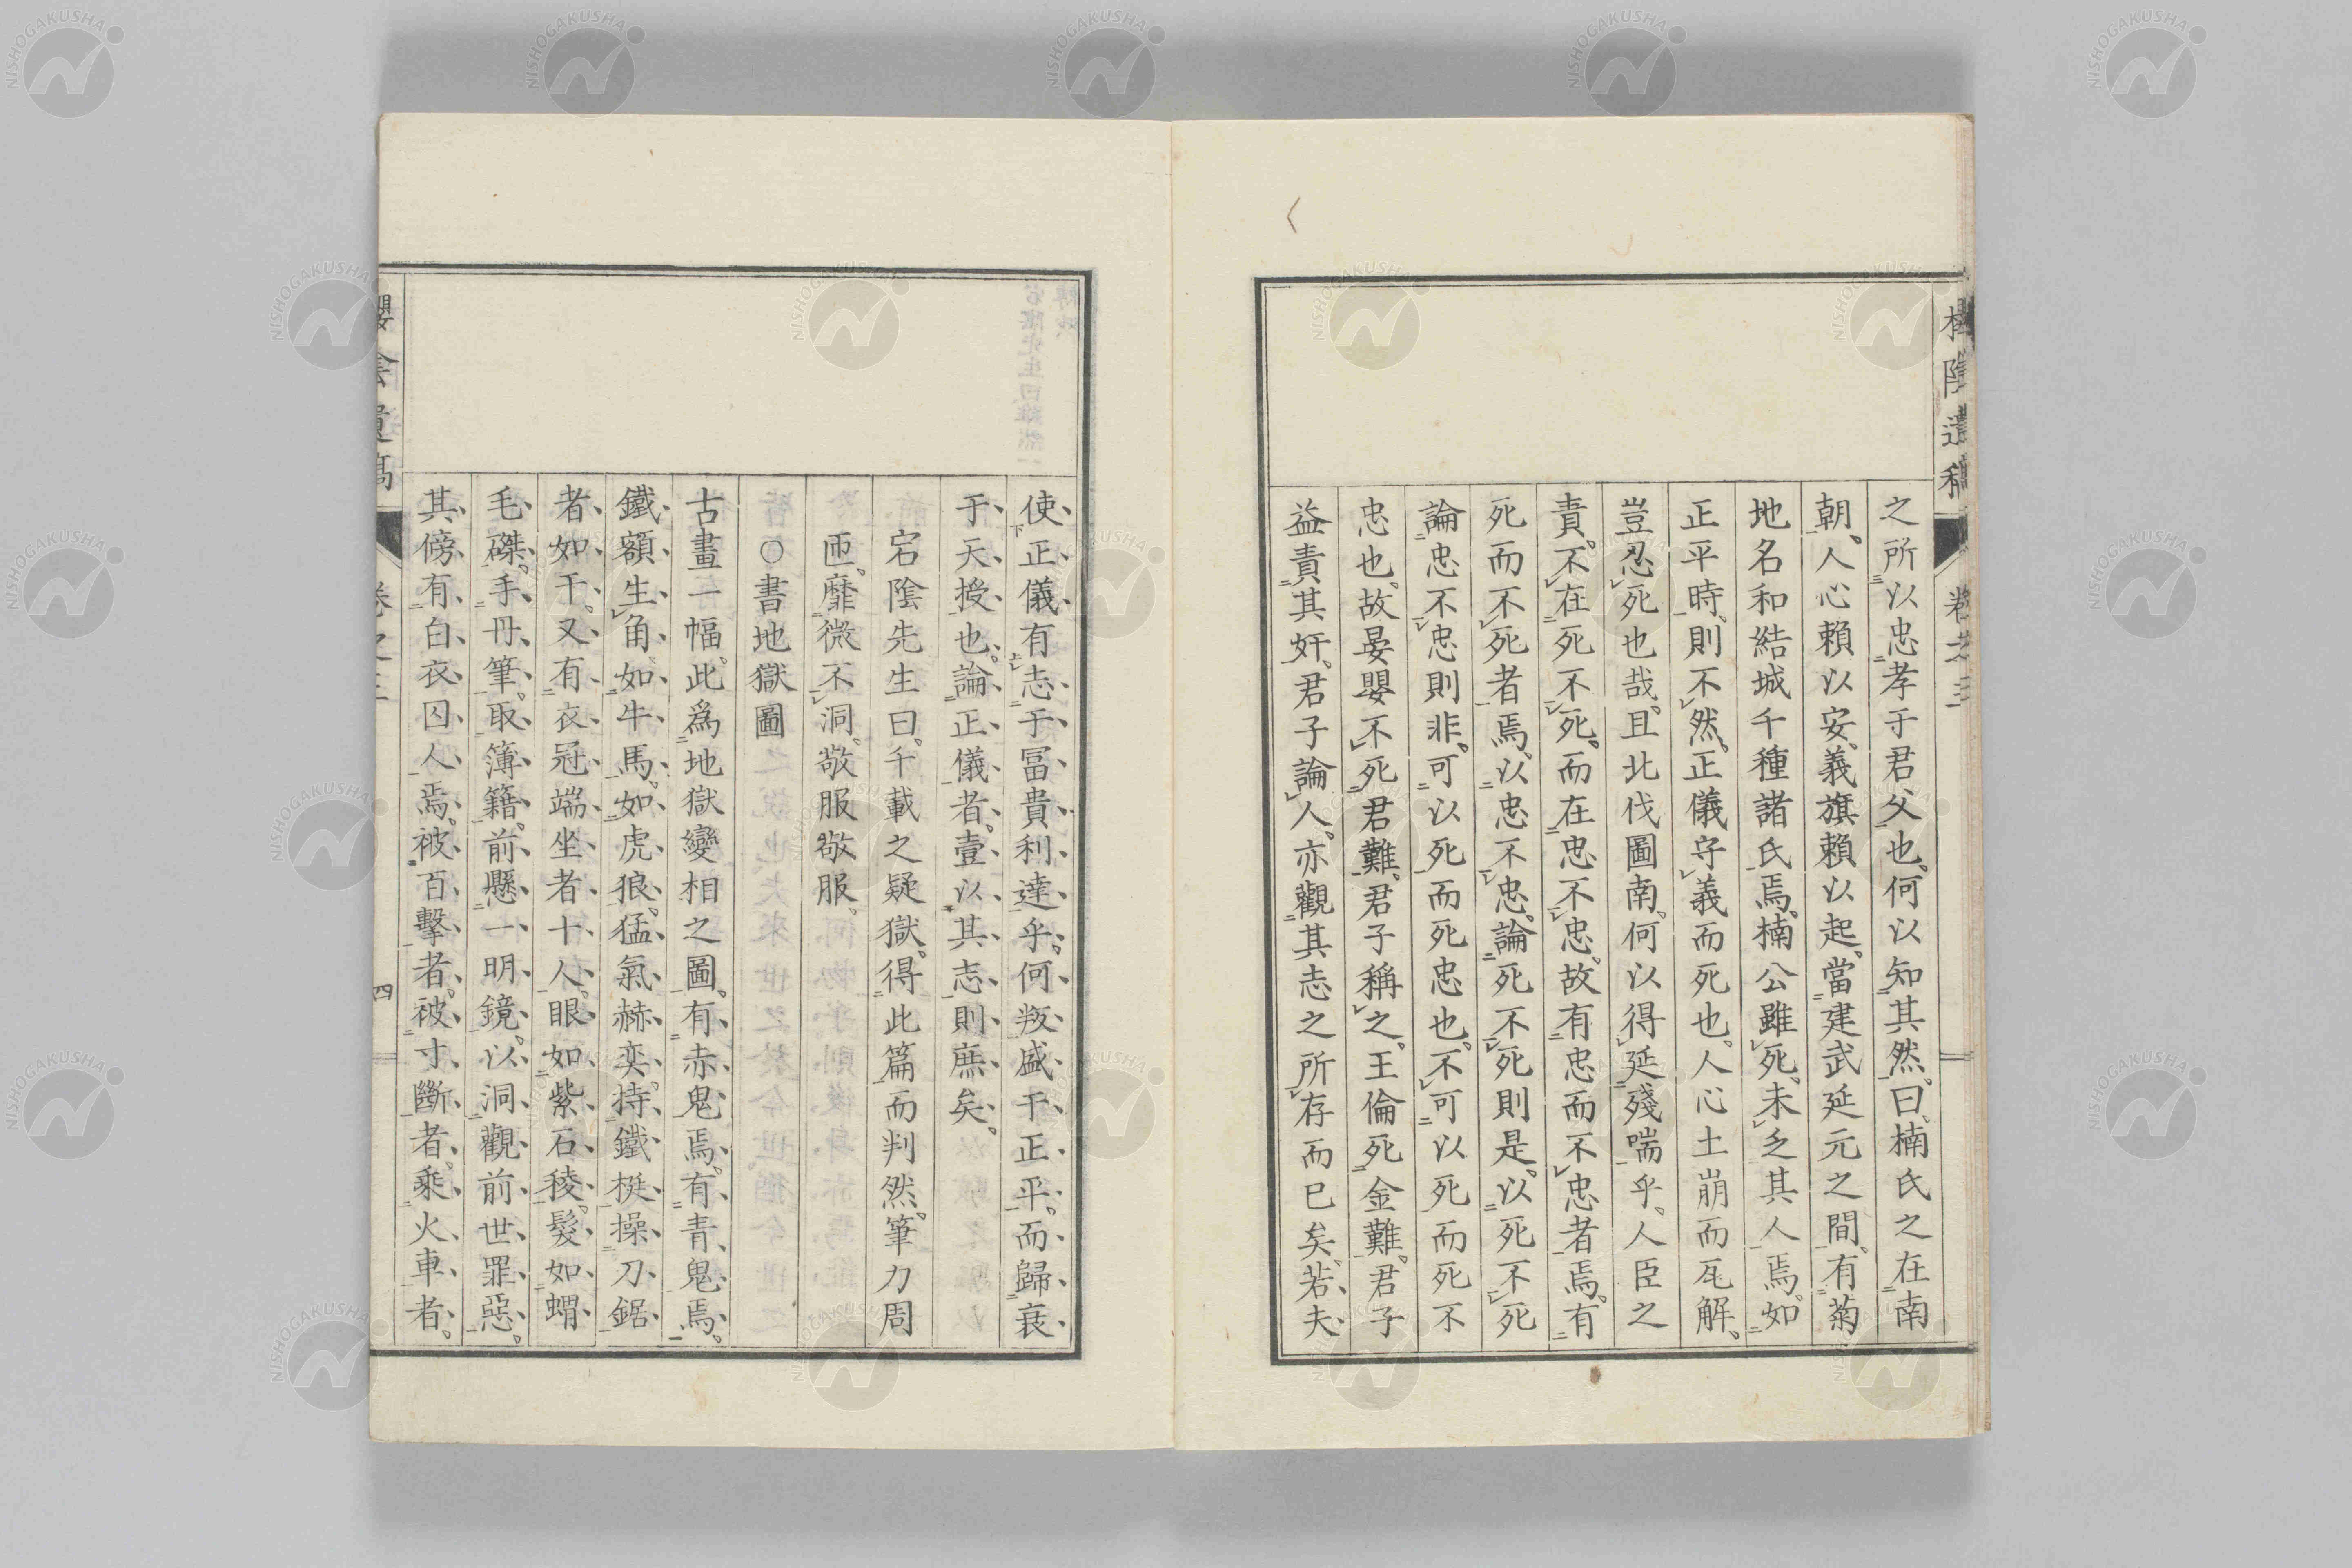 之所以忠孝于君父也。何以知其然。曰。楠氏之在南
朝、人心賴以安、義旗賴以起。當建武延元之間、有菊
地名和結城千種諸氏焉。楠公雖死、未乏其人焉。如
正平時、則不然。正儀守義而死也、人心土崩而瓦解。
豈忍死也哉。且北伐圖南。何以得延殘喘乎。人臣之
責、不在死不死、而在忠不忠。故有忠而不忠者焉。有
死而不死者焉。以忠不忠、論死不死則是。以死不死
論忠不忠則非。可以死而死忠也。不可以死而死不
忠也。故晏嬰不死君難。君子稱之。王倫死金難。君子
益責其奸。君子論人。亦觀其志之所存而已矣。若夫
使正儀有志于冨貴利達乎。何叛盛于正平。而歸衰
于天授也。論正儀者。壹以其志則庶矣。
宕陰先生曰。千載之疑獄。得此篇而判然。筆力周
匝。靡微不洞。敬服敬服。
○書地獄圖
古畫一幅。此爲地獄變相之圖。有赤鬼焉。有青鬼焉。
鐵額生角如牛馬。如虎狼。猛氣赫奕。持鐵梃操刀鋸
者如干。又有衣冠端坐者十人。眼如紫石稜。髮如蝟
毛磔。手丹筆。取簿籍。前懸一明鏡。以洞觀前世罪惡。
其傍有白衣囚人焉。被百擊者。被寸斷者。乘火車者。
卷之三
四
NISHOGAKUSHA